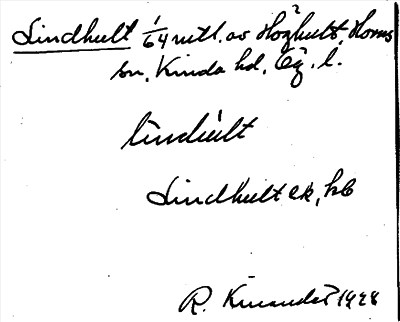 Lindhult 1/64 mtl. av Höghult, Horns
sn, Kinda hd, Ög. l.
lindult
Lindhult ek, kb
R. 1928